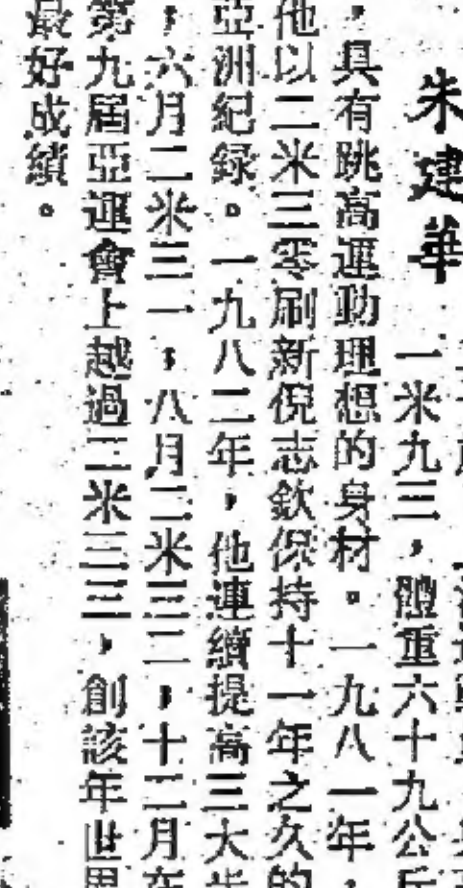 朱建華
一米九三，體重六十九公斤
，具有跳高運動理想的身材。一九八一年，
他以二米三零刷新倪志欽保持十一年之久的
亞洲紀録。一九八二年，他連續提高三大步
，六月二米三一，八月二米三二，十二月在
第九屆亞運會上越過二米三三，創該年世界
最好成績。